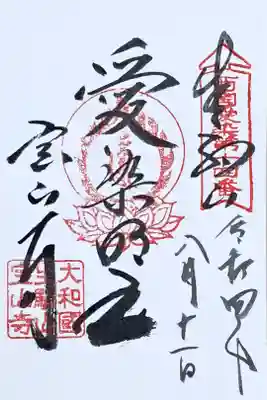 奉拝
西国愛染十七霊場
令和四年
八月十一日
愛染明王
宝山寺
大和國
生駒山
宝山寺